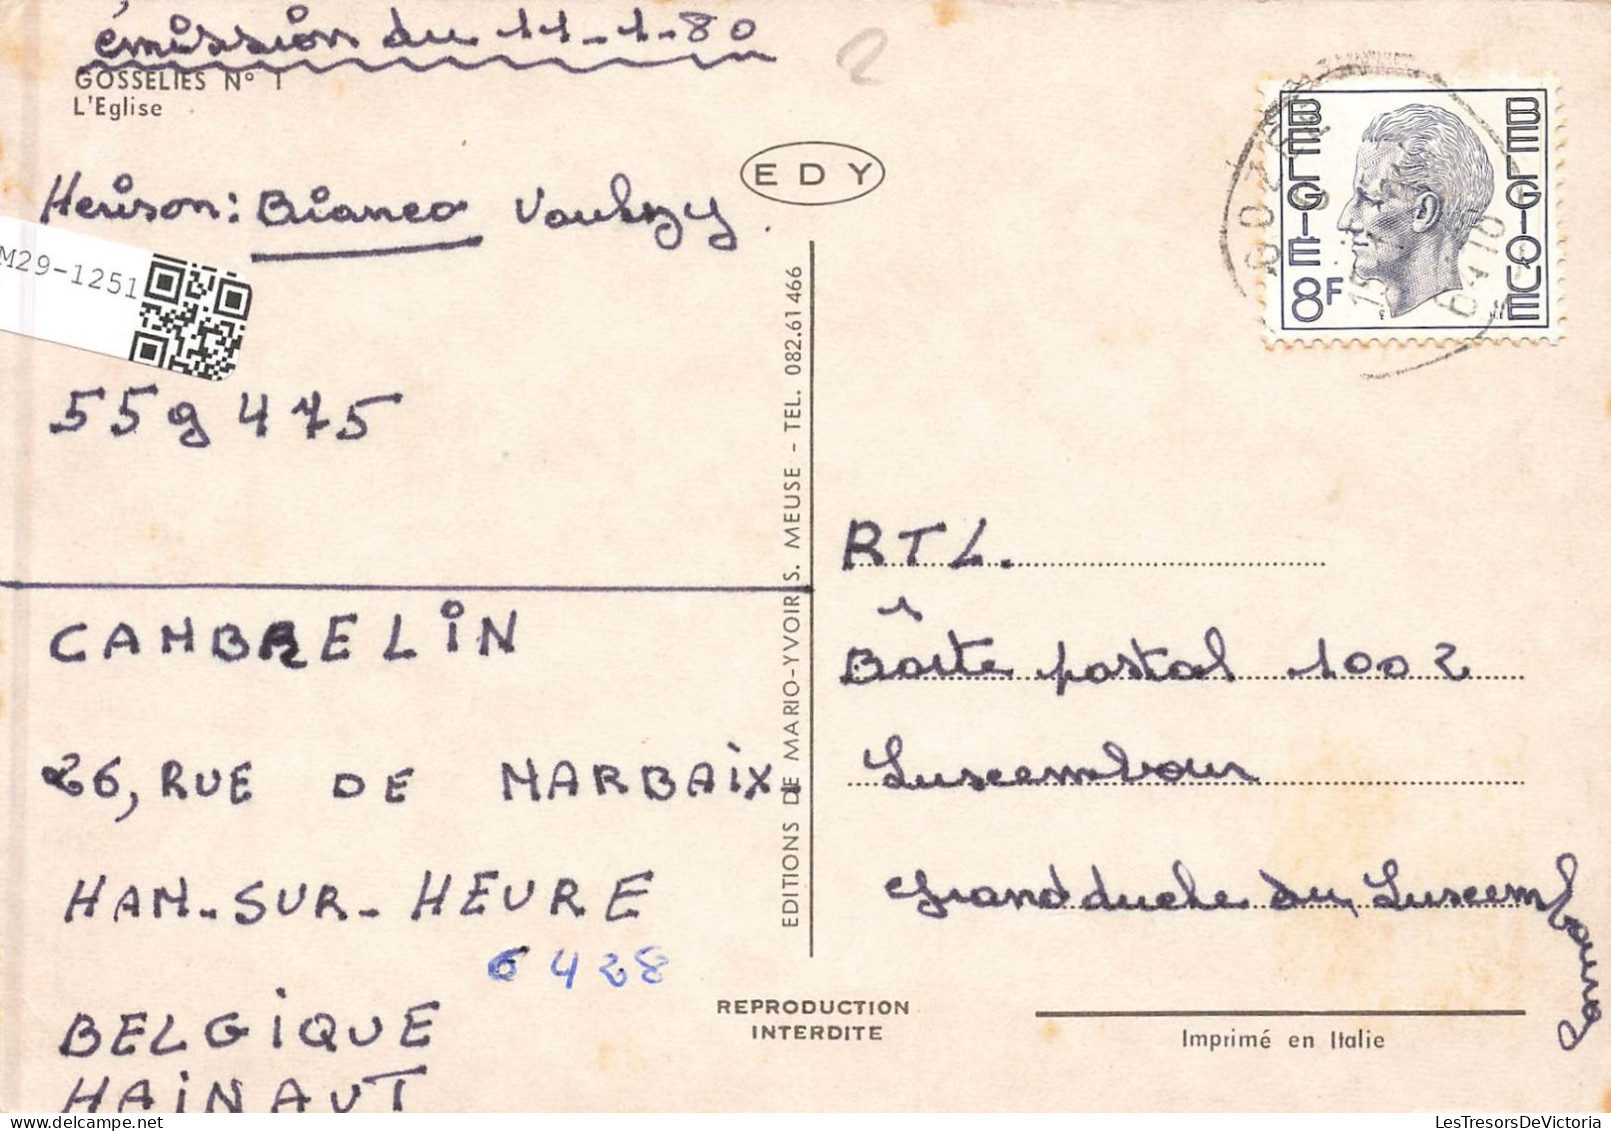 émission du 11-1-80
GOSSELIES N° 1
L'Eglise
EDY
Herison: Bianco
M29-1251
559475
EDITIONS DE MARIO-YVOIR S. MEUSE - TEL. 082.61 466
CAMBRELIN
26, RUE DE MARBAIX
HAM-SUR-HEURE
6428
BELGIQUE
HAINAUT
BELGIE 8F
BELGIQUE
RTL.
Boîte postal 1002
Luxembour
Grand duche du Luxembourg
REPRODUCTION
INTERDITE
Imprimé en Italie
2
LesTresorsDeVictoria